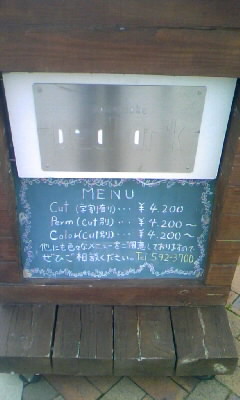 MENU
Cut (学割有り)・・・ ¥4.200
Perm (Cut別)・・・ ¥4.200〜
Color (Cut別)・・・ ¥4.200〜
他にも色々なメニューをご用意しておりますので
ぜひご相談ください。Tel 592-3700